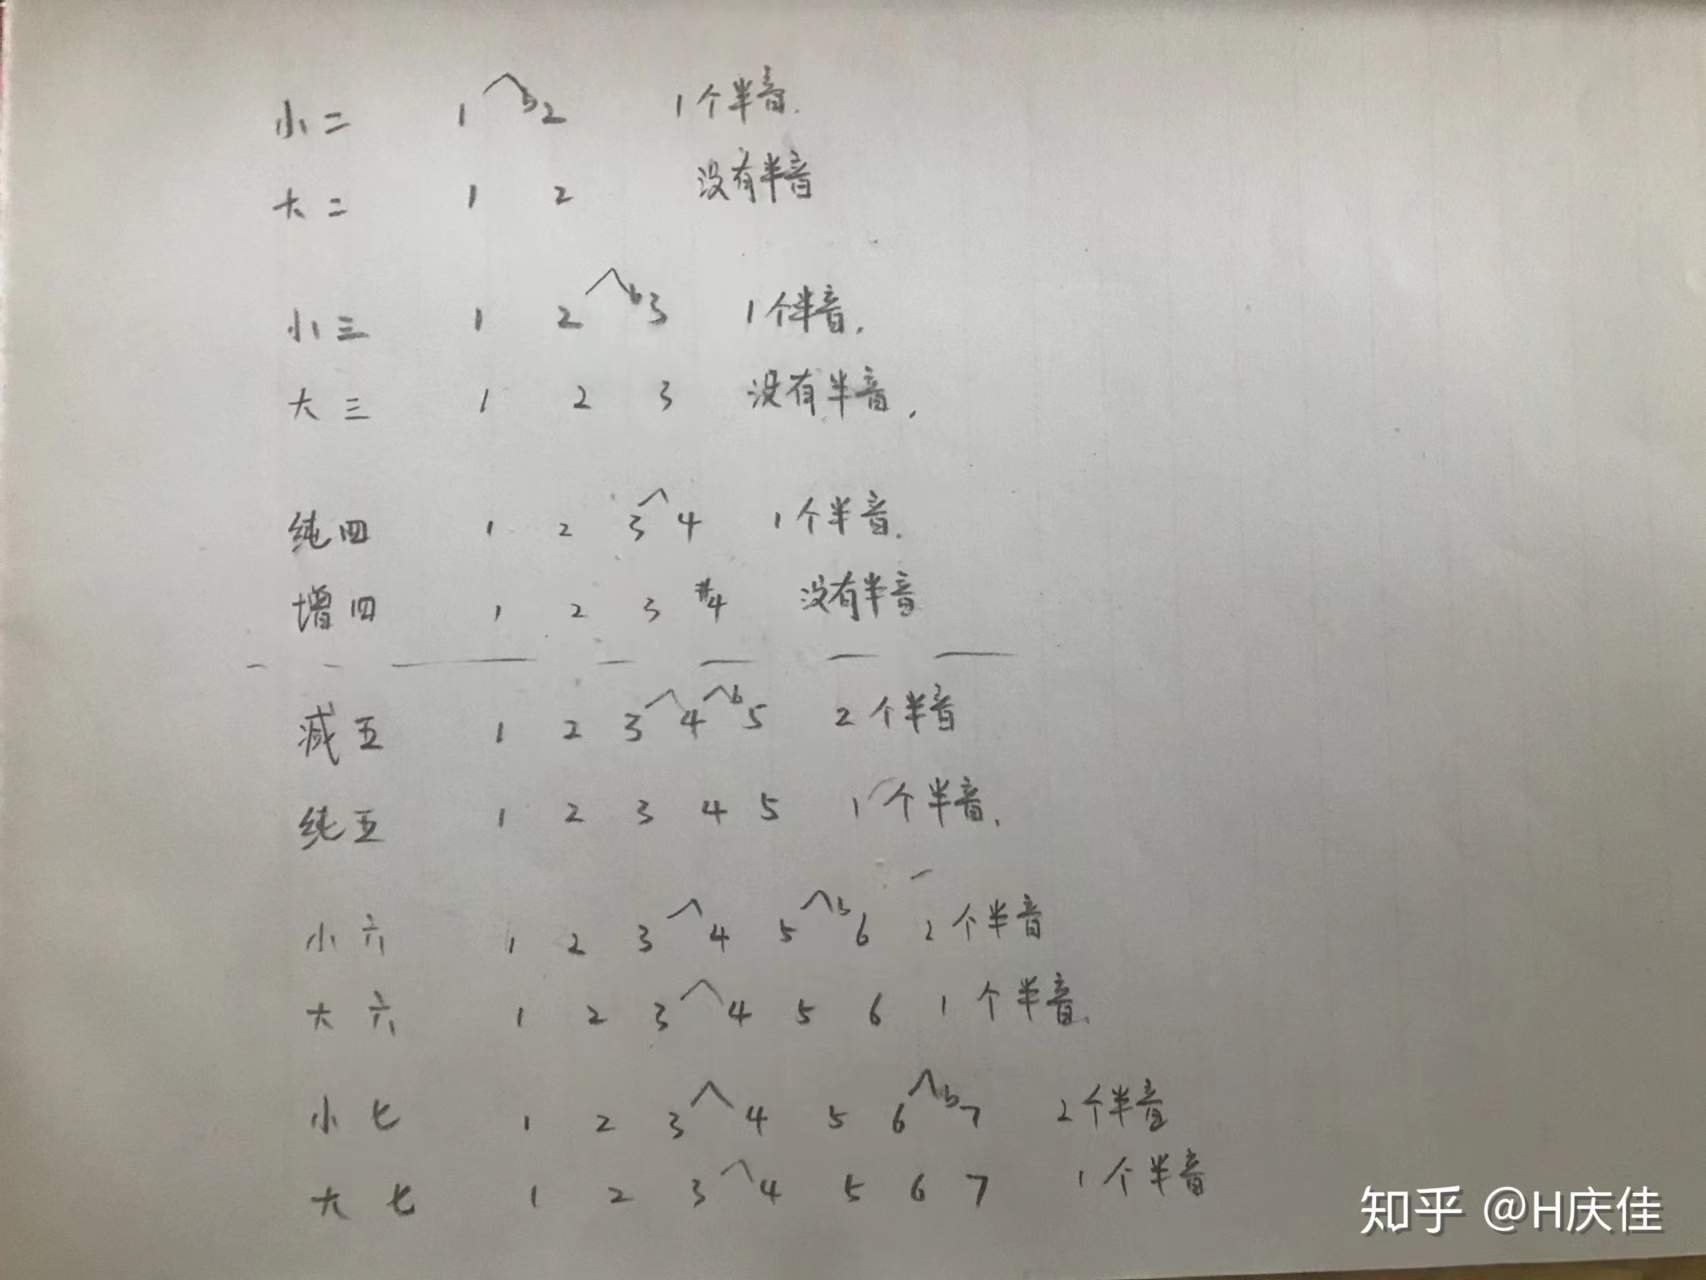 小二 1 b2 1个半音.
大二 1 2 没有半音
小三 1 2 b3 1个半音.
大三 1 2 3 没有半音,
纯四 1 2 3 4 1个半音.
增四 1 2 3 #4 没有半音
减五 1 2 3 4 b5 2个半音
纯五 1 2 3 4 5 1个半音.
小六 1 2 3 4 5 b6 2个半音
大六 1 2 3 4 5 6 1个半音.
小七 1 2 3 4 5 6 b7 2个半音
大七 1 2 3 4 5 6 7 1个半音
知乎 @H庆佳